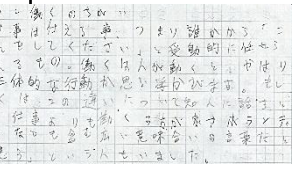 こ 働くのちがい
事は仕える事、つまり誰かから「こ
をしてください」と受動的に任せら
るもの。働くは人が動くと やはり
体的な行動が思い浮かびます。
くはこの違いについて知人に話すと
仕事よりも働く の方が家事やボランティ
なども含む広い意味合いの言葉だと
思う。という人もいました。